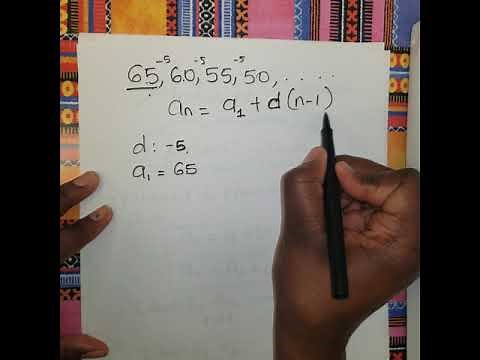 -5 -5 -5
65, 60, 55, 50, . . . . .
an = a1 + d (n-1)
d : -5.
a1 = 65